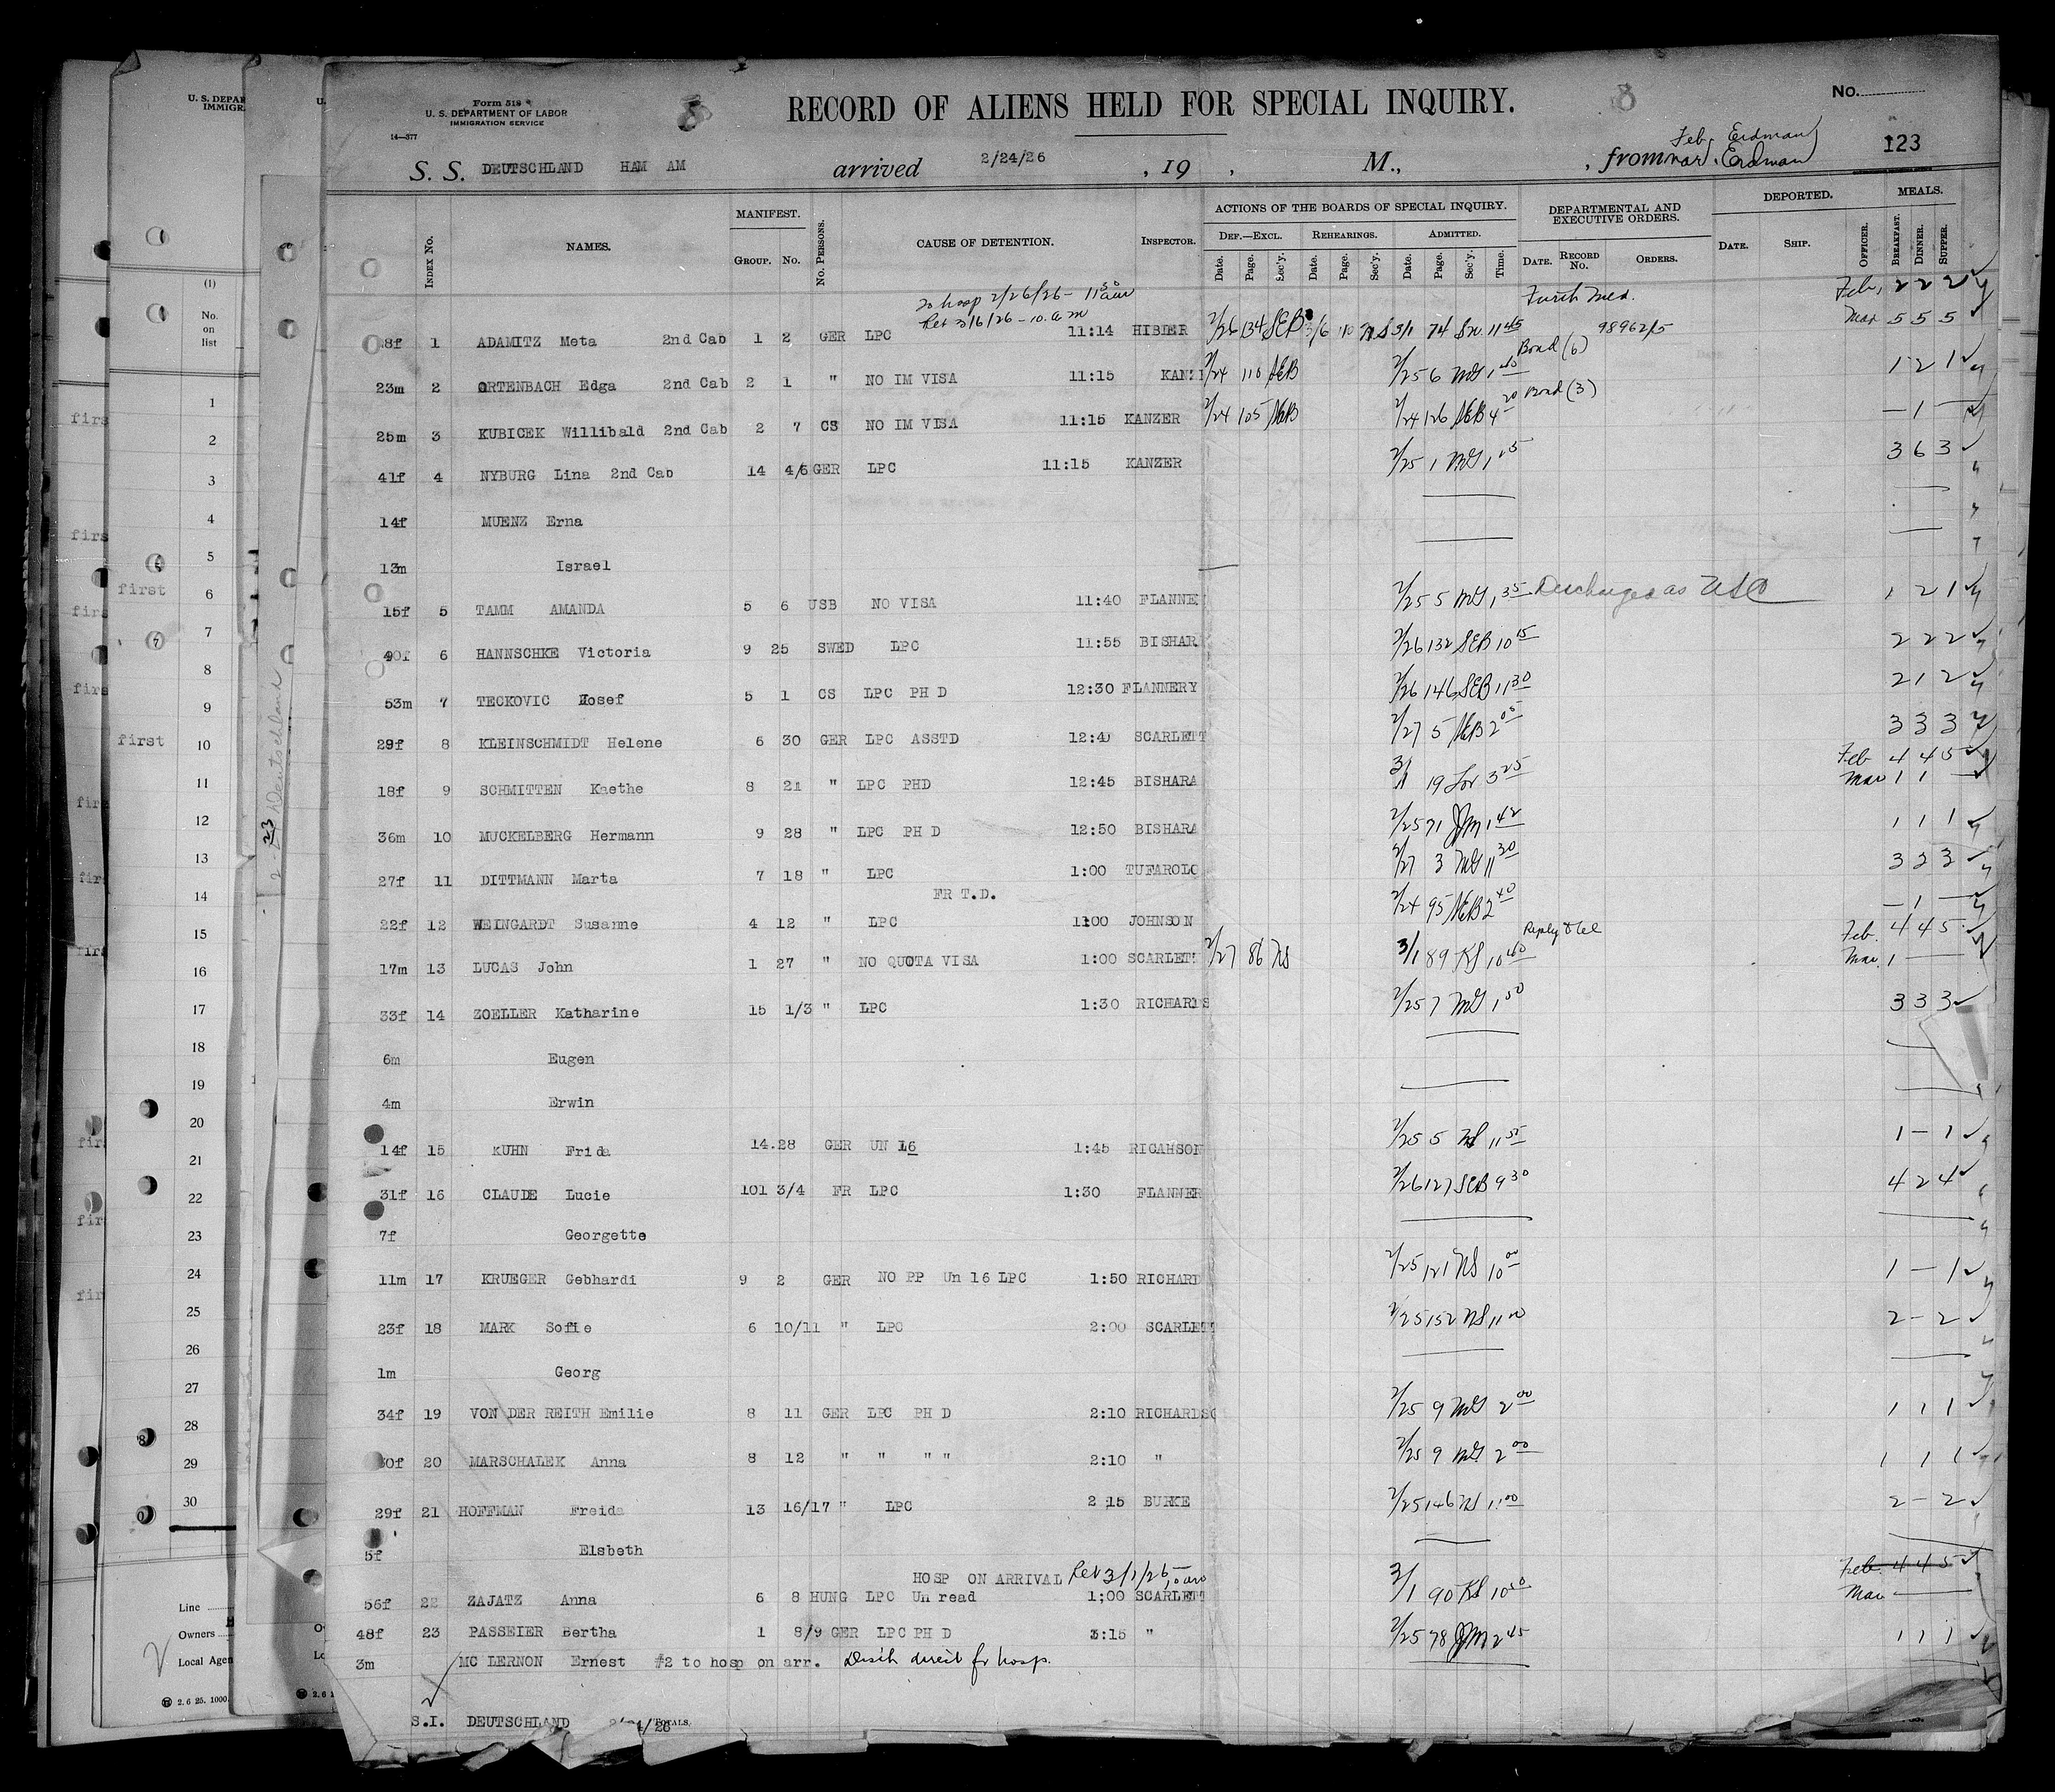 U. S. DEPAR
IMMIGR.
Form 518
U. S. DEPARTMENT OF LABOR
IMMIGRATION SERVICE
14—377
8
RECORD OF ALIENS HELD FOR SPECIAL INQUIRY.
8
No.
123
S. S. DEUTSCHLAND HAM AM arrived 2/24/26, 19 , M., , from
Feb, Erdman
mar. Erdman
INDEX No. NAMES. MANIFEST. GROUP. No. No. PERSONS. CAUSE OF DETENTION. INSPECTOR. ACTIONS OF THE BOARDS OF SPECIAL INQUIRY. DEPARTMENTAL AND EXECUTIVE ORDERS. DEPORTED. MEALS.
DEF.—EXCL. REHEARINGS. ADMITTED.
Date. Page. Sec'y. Date. Page. Sec'y. Date. Page. Sec'y. Time. DATE. RECORD No. ORDERS. DATE. SHIP. OFFICER. BREAKFAST. DINNER. SUPPER.
To hosp 2/26/26 - 11 30 am Furth med. Feb, 2 2 2
Ret 3/6/26 - 10. a m Mar 5 5 5
8f 1 ADAMITZ Meta 2nd Cab 1 2 GER LPC 11:14 HIBLER 2/26 134 SEB 3/6 110 74 11 45 98962/5
Bond (6)
23m 2 ORTENBACH Edga 2nd Cab 2 1 " NO IM VISA 11:15 KANZ 2/24 110 AEB 2/25 6 MG 1 40 1 2 1
Bond (3)
25m 3 KUBICEK Willibald 2nd Cab 2 7 CS NO IM VISA 11:15 KANZER 2/24 105 AEB 2/24 126 AEB 4 20 — 1 —
41f 4 NYBURG Lina 2nd Cab 14 4/6 GER LPC 11:15 KANZER 2/25 1 MG 1 05 3 6 3
14f MUENZ Erna
13m Israel
15f 5 TAMM AMANDA 5 6 USB NO VISA 11:40 FLANNE 2/25 5 MG 1 35 Discharged as USC 1 2 1
40f 6 HANNSCHKE Victoria 9 25 SWED LPC 11:55 BISHAR 2/26 132 SEB 10 15 2 2 2
53m 7 TECKOVIC Josef 5 1 CS LPC PH D 12:30 FLANNERY 2/26 146 SEB 11 30 2 1 2
29f 8 KLEINSCHMIDT Helene 6 30 GER LPC ASSTD 12:40 SCARLETT 2/27 5 AEB 2 05 3 3 3
Feb 4 4 5
Mar 1 1 —
18f 9 SCHMITTEN Kaethe 8 21 " LPC PHD 12:45 BISHARA 3/1 19 3 25
36m 10 MUCKELBERG Hermann 9 28 " LPC PH D 12:50 BISHARA 2/25 71 JM 1 42 1 1 1
27f 11 DITTMANN Marta 7 18 " LPC 1:00 TUFAROLO 2/27 3 MG 11 30 3 2 3
FR T.D.
22f 12 WEINGARDT Susanne 4 12 " LPC 1:00 JOHNSON 2/24 95 AEB 2 40 — 1 —
Reply to tel Feb. 4 4 5
Mar. 1 —
17m 13 LUCAS John 1 27 " NO QUOTA VISA 1:00 SCARLETT 2/27 86 NS 3/1 89 KS 10 40
33f 14 ZOELLER Katharine 15 1/3 " LPC 1:30 RICHARDS 2/25 7 MG 1 50 3 3 3
6m Eugen
4m Erwin
14f 15 KUHN Frida 14.28 GER UN 16 1:45 RICAHSON 2/25 5 NS 11 55 1 — 1
31f 16 CLAUDE Lucie 101 3/4 FR LPC 1:30 FLANNER 2/26 127 SEB 9 30 4 2 4
7f Georgette
11m 17 KRUEGER Gebhardi 9 2 GER NO PP Un 16 LPC 1:50 RICHARD 2/25 121 NS 10 00 1 — 1
23f 18 MARK Sofie 6 10/11 " LPC 2:00 SCARLETT 2/25 152 NS 11 00 2 — 2
1m Georg
34f 19 VON DER REITH Emilie 8 11 GER LPC PH D 2:10 RICHARDSO 2/25 9 MG 2 00 1 1 1
30f 20 MARSCHALEK Anna 8 12 " " " " 2:10 " 2/25 9 MG 2 00 1 1 1
29f 21 HOFFMAN Freida 13 16/17 " LPC 2 15 BURKE 2/25 146 NS 11 00 2 — 2
5f Elsbeth
HOSP ON ARRIVAL Ret 3/1/26 10 am Feb. 4 4 5
Mar —
56f 22 ZAJATZ Anna 6 8 HUNG LPC Un read 1;00 SCARLETT 3/1 90 KS 10 50
48f 23 PASSEIER Bertha 1 8/9 GER LPC PH D 3:15 " 2/25 78 JM 2 45 1 1 1
3m MC LERNON Ernest #2 to hosp on arr. Disch direct fr hosp.
S.I. DEUTSCHLAND 2/24/26 TOTALS,
(1)
No.
on
list
1
2
3
4
5
6
7
8
9
10
11
12
13
14
15
16
17
18
19
20
21
22
23
24
25
26
27
28
29
30
first
first
2-23 Deutschland
Line
Owners
Local Agen
2. 6 25. 1000.